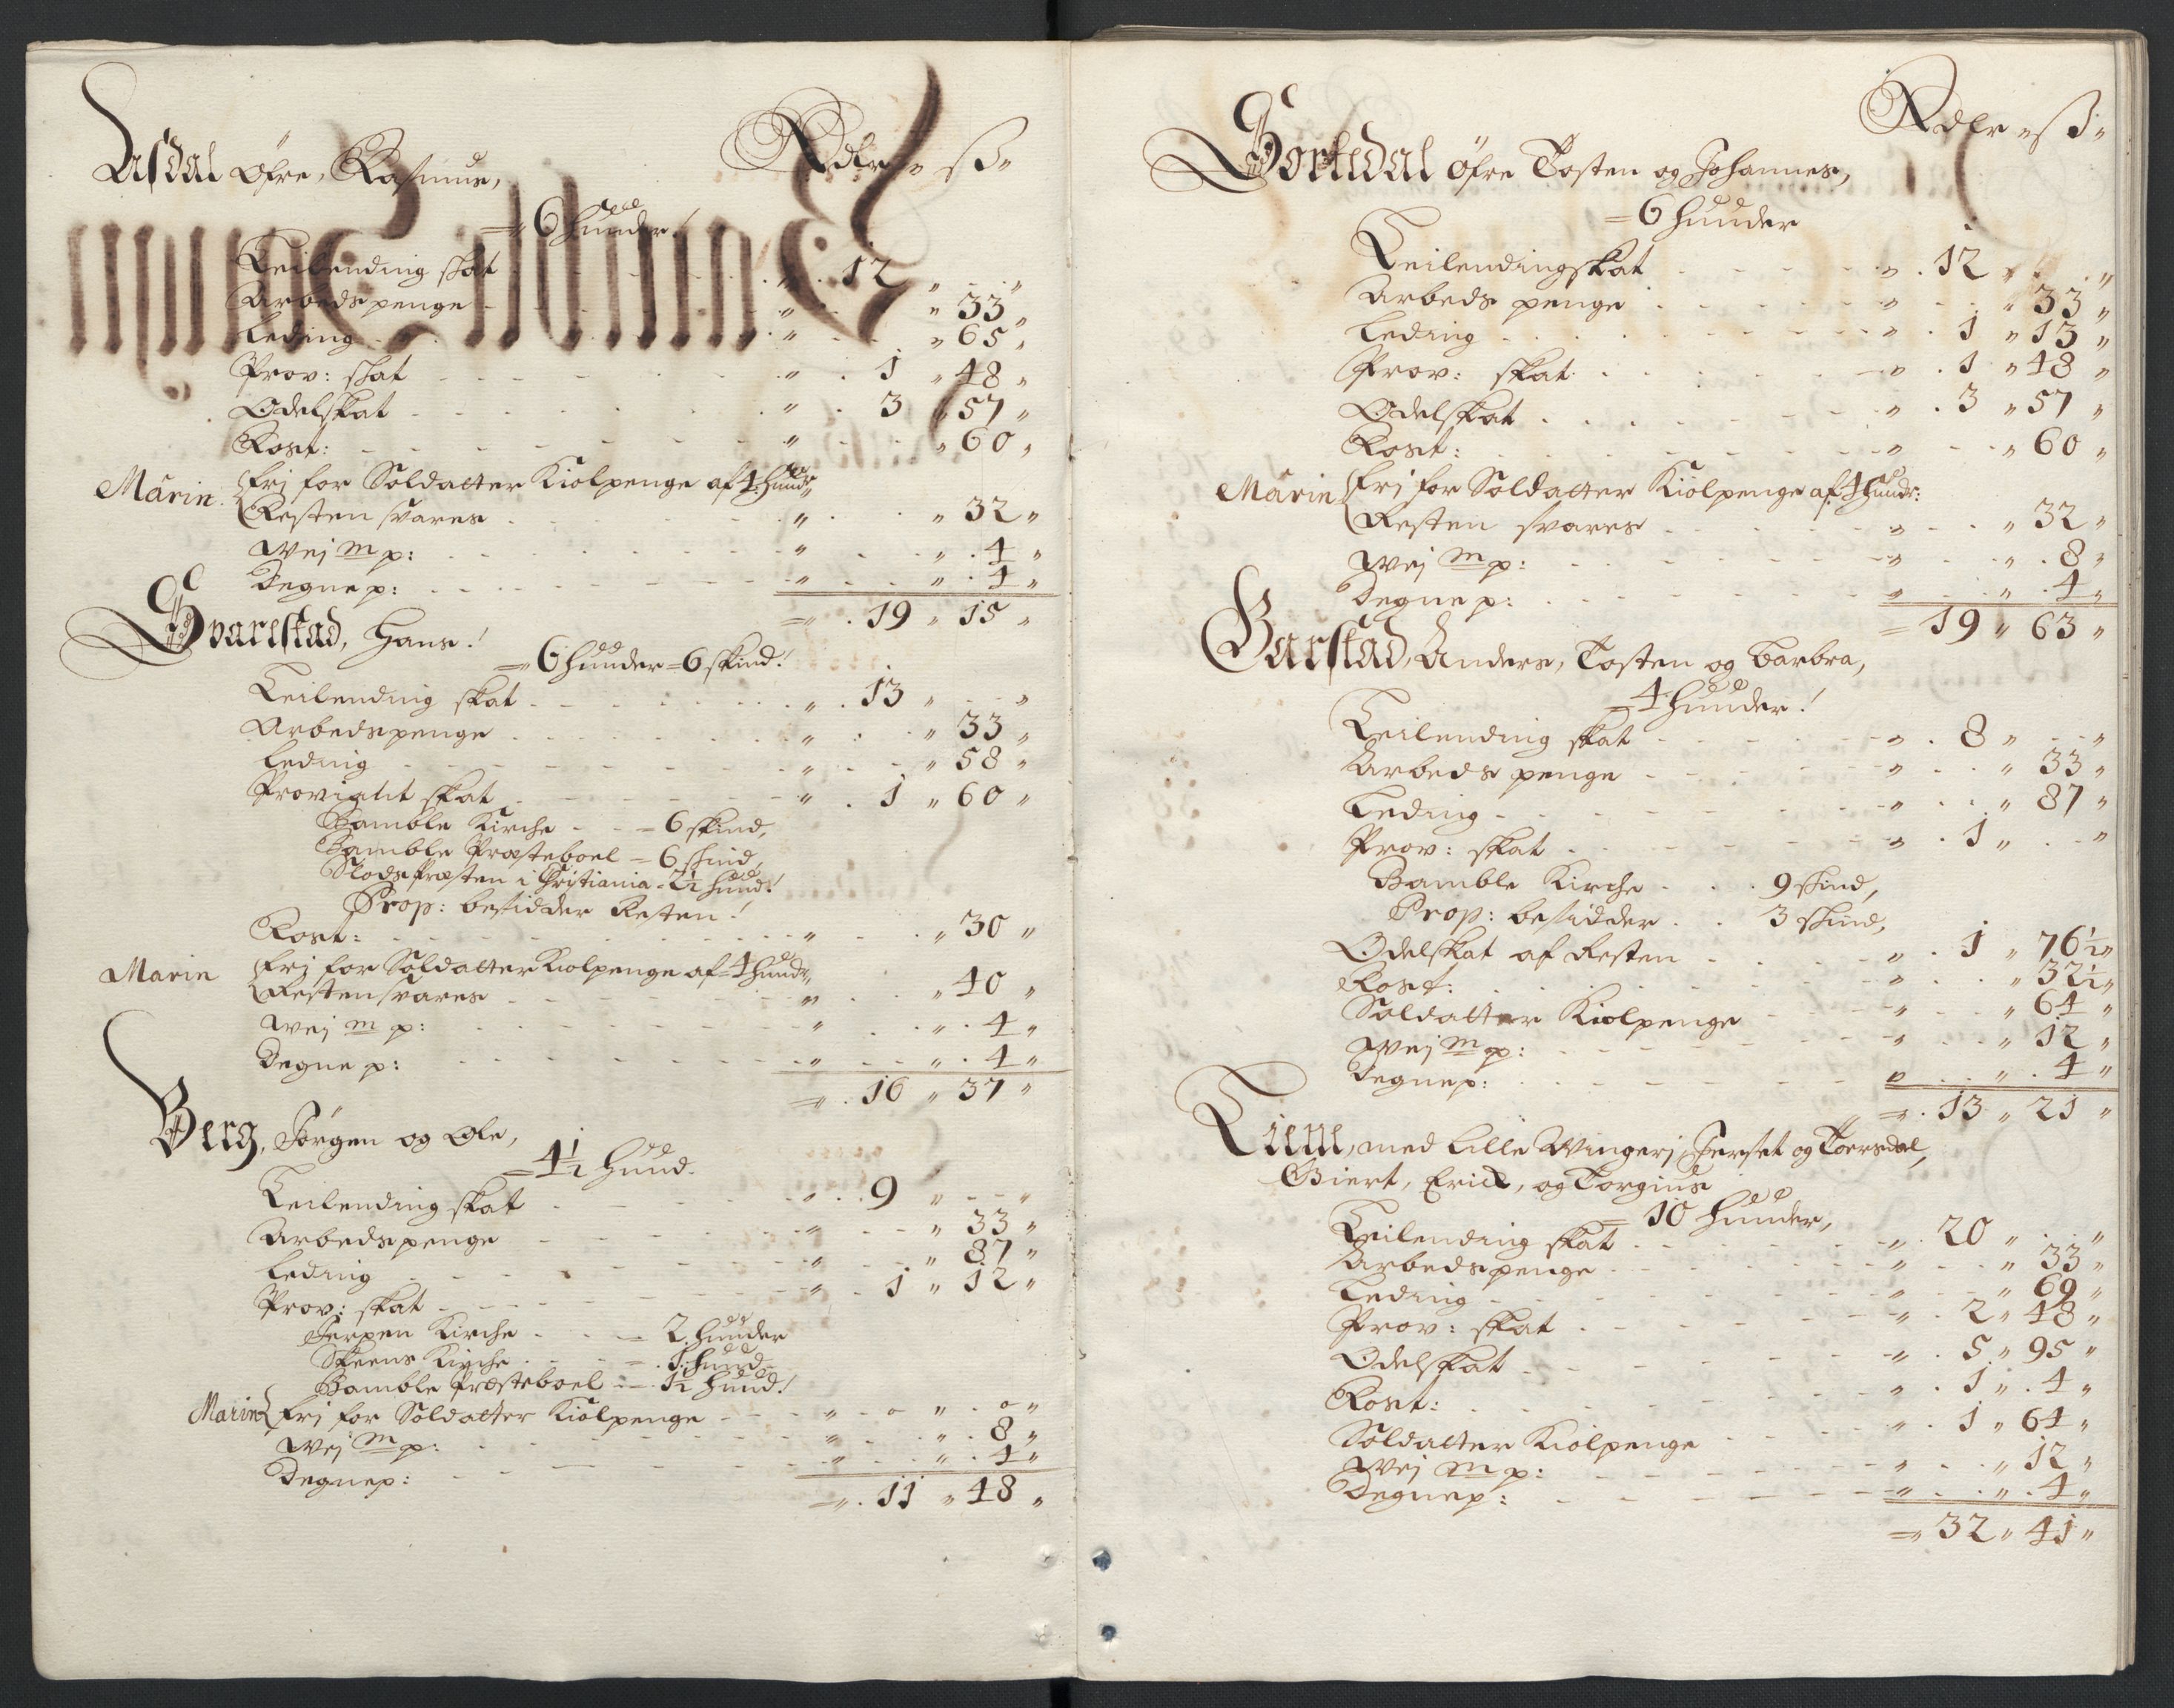 Rdlr " ß "
Aasdal Øfre, Rasmus,
= 6 hunder!
Leilending skat " 12 " "
Arbedspenge " " 33 "
Leding " " 65 "
Prov: skat " 1 " 48 "
Odelskat " 3 " 57 "
Rost: " " 60 "
Marin. fri for Soldatter Kiolpenge af 4 hundr
Resten svares " " 32 "
Wej m p: " " 4 "
Degne p: " " 4 "
= 19 " 15 "
Svarstad, Hans!
= 6 hunder = 6 skind!
Leilending skat " 13 " "
Arbedspenge " " 33 "
Leding " " 58 "
Proviantt skat " 1 " 60 "
Bamble Kirche - - = 6 skind,
Bamble Præsteboel = 6 skind,
Slodspræsten i Christiania = 2½ hund!
Prop: besidder Resten!
Rost: " " 30 "
Marin fri for Soldatter Kiolpenge af = 4 hundr
Resten svares " " 40 "
Wej m p: " " 4 "
Degne p: " " 4 "
= 16 " 37 "
Berg, Jørgen og Ole,
= 4½ hund.
Leilending skat " 9 " "
Arbedspenge " " 33 "
Leding " " 87 "
Prov: skat " 1 " 12 "
Jerpen Kirche - - = 2 hunder
Skeens Kirche - - = 1 hund
Bamble Præsteboel = 1½ hund!
Marin fri for Soldatter Kiolpenge " 0 " 0 "
Wej m p: " " 8 "
Degnep: " " 4 "
= 11 " 48 "
Rdlr " ß "
Øfre Tosten og Johannes,
= 6 hunder
Leilendingskat " 12 " "
Arbeds penge " " 33 "
Leding " 1 " 13 "
Prov: skat " 1 " 48 "
Odelskat " 3 " 57 "
Rost: " " 60 "
Marin fri for Soldatter Kiolpenge af 4 hundr:
Resten svares " " 32 "
Wej m p: " " 8 "
Degne p: " " 4 "
= 19 " 63 "
Garstad, Anders, Tosten og Barbra,
= 4 hunder!
Leilending skat " 8 " "
Arbeds penge " " 33 "
Leding " " 87 "
Prov: skat " 1 " "
Bamble Kirche - - 9 skind,
Prop: besidder - - 3 skind,
Odelskat af Resten " 1 " 76½ "
Rost: " " 32½ "
Soldatter Kiolpenge " " 64 "
Wej m p: " " 12 "
Degnep: " " 4 "
= 13 " 21 "
med Lille Wingerj, Herset og Toersdal,
Giert, Erick, og Torgius
= 10 hunder,
Leilending skat " 20 " "
Arbedspenge " " 33 "
Leding " " 69 "
Prov: skat " 2 " 48 "
Odelskat " 5 " 95 "
Rost: " 1 " 4 "
Soldatter Kiolpenge " 1 " 64 "
Wej m p: " " 12 "
Degnep: " " 4 "
= 32 " 41 "